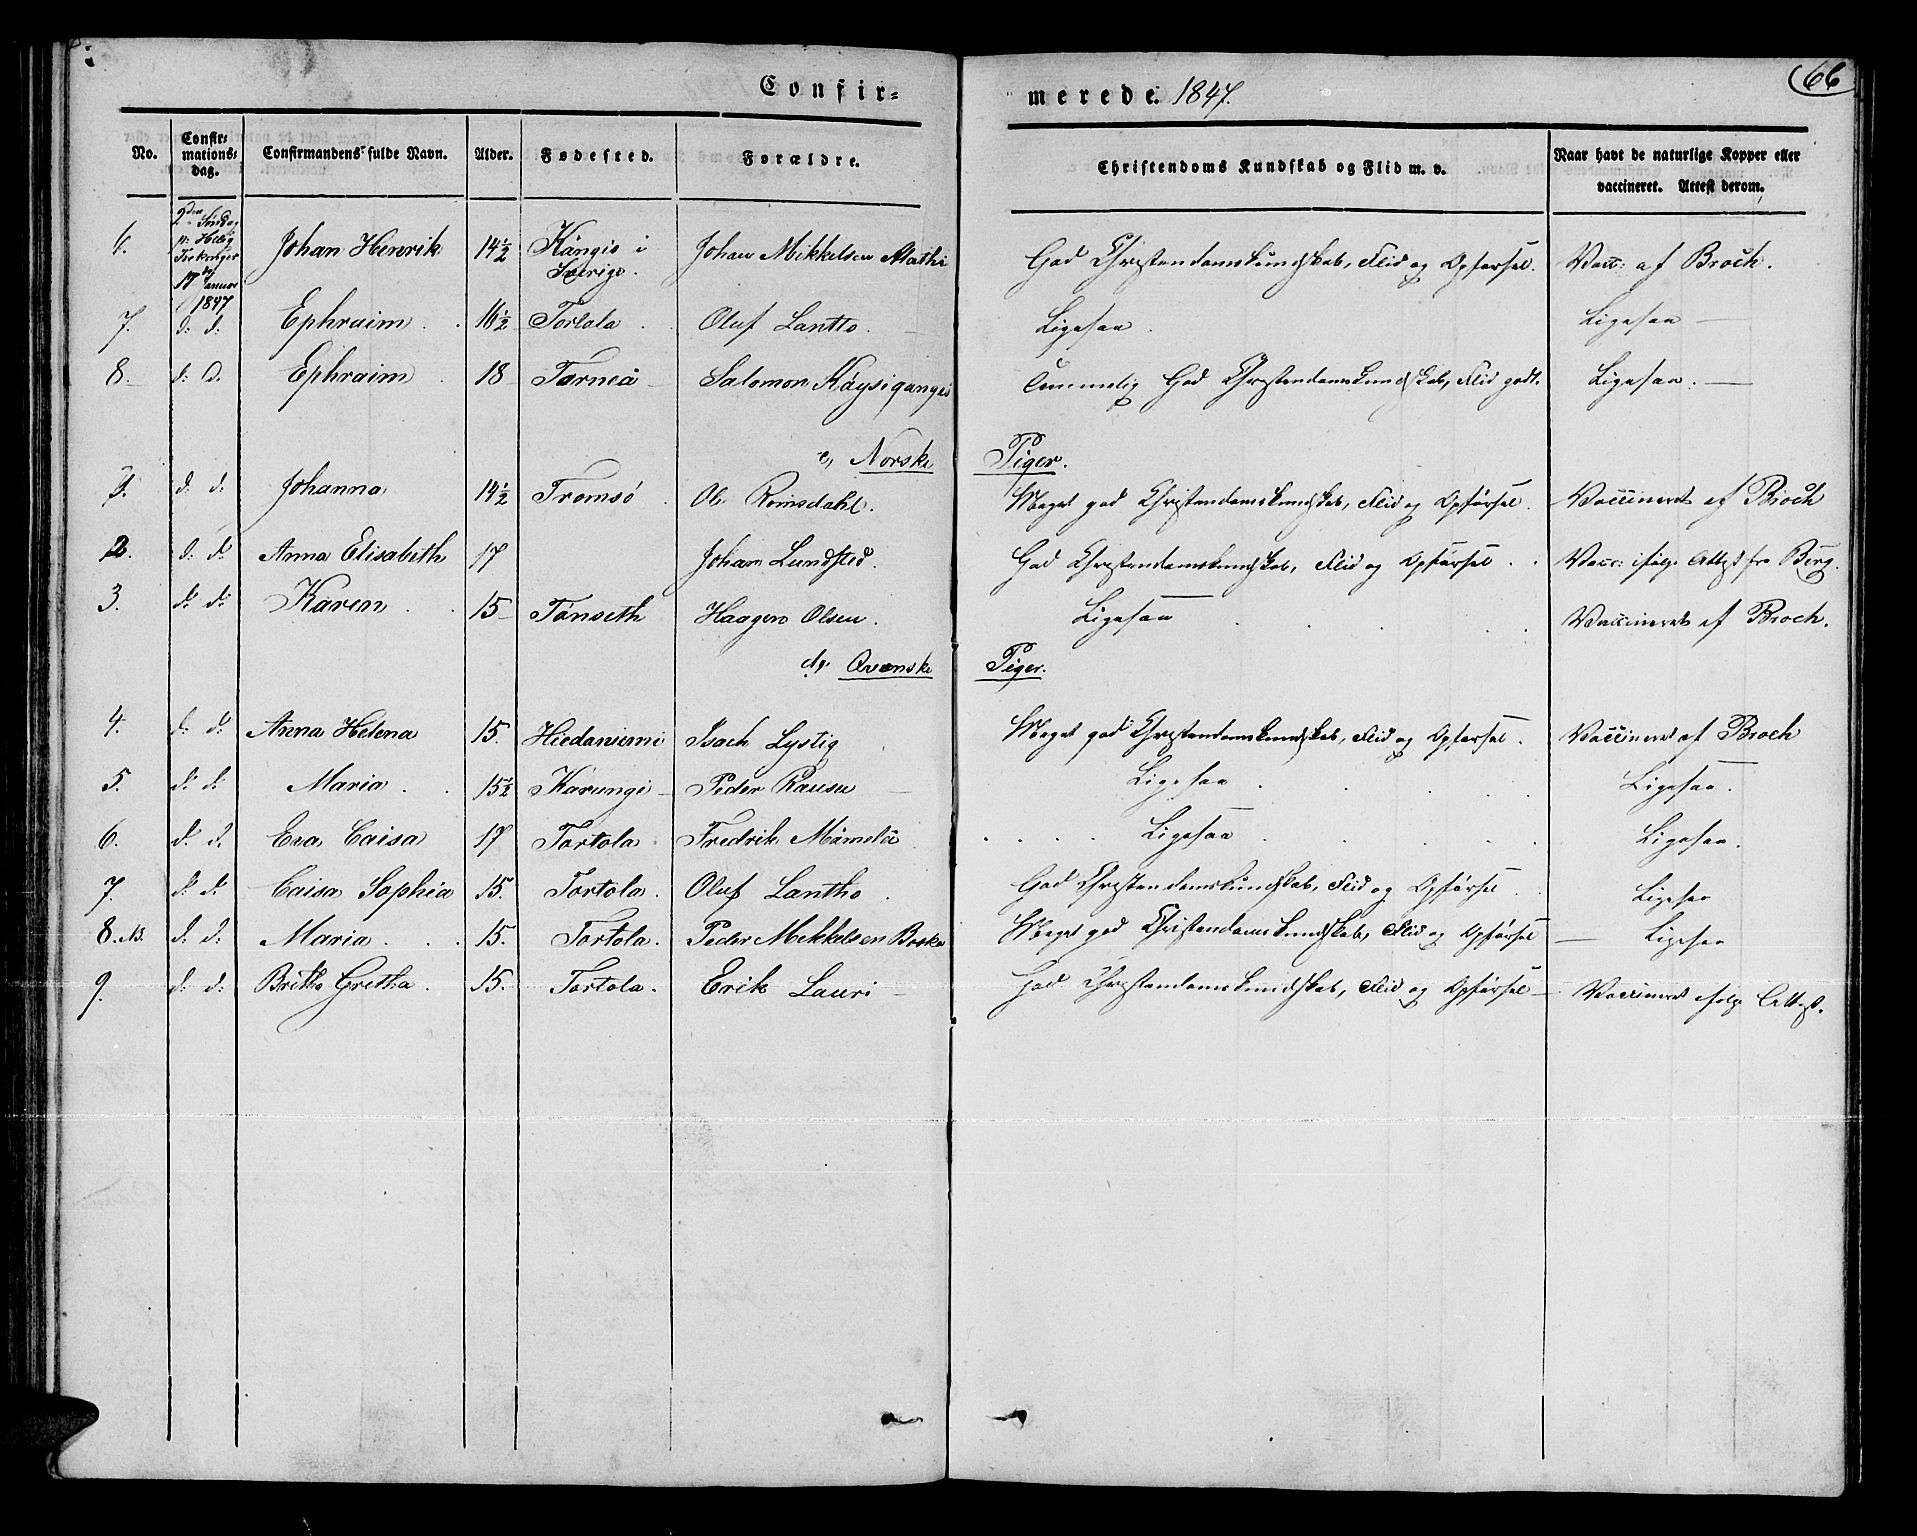 66
Confir- merede. 1847.
No. Confir-mations-dag. Confirmandens fulde Navn. Alder. Fødested. Forældre. Christendoms Kundskab og Flid m. v. Naar havt de naturlige Kopper eller vaccineret. Attest derom.
6. 2den Søndag p: Hellig Trekonger 17 Januar 1847 Johan Henrik 14½ Kängis i Sverige. Johan Mikkelsen Mathi God Christendomskundskab, Flid og Opførsel. Vacc: af Broch.
7. d: d: Ephraim 16½ Tortola Oluf Lantto. Ligesaa Ligesaa
8. d: d. Ephraim 18 Torneå Salomon Käysiganges Temmelig God Christendomskundskab, Flid godt. Ligesaa.
c, Norske Piger.
1. d: d: Johanna 14½ Tromsø Ole Romsdahl. Meget god Christendomskundskab, Flid og Opførsel. Vaccineret af Broch
2. d: d: Anna Elisabeth 17 Johan Lundsted. God Christendomskundskab, Flid og Opførsel. Vacc: ifølge Attest fra Berg.
3. d: d: Karen 15 Tønseth Haagen Olsen. Ligesaa Vaccineret af Broch.
d, Qvænske Piger.
4. d: d: Anna Helena 15. Hiedaniemi Isach Lystig Meget god Christendomskundskab, Flid og Opførsel. Vaccineret af Broch
5. d: d: Maria 15½ Karungi Peder Rausu Ligesaa Ligesaa.
6. d: d. Eva Caisa 17 Tortola Fredrik Mämelä Ligesaa Ligesaa.
7. d: d: Caisa Sophia 15. Tortola. Oluf Lantho God Christendomskundskab, Flid og Opførsel. Ligesaa
8. NB. d: d: Maria 15. Tortola. Peder Mikkelsen Christendomskundskab, Meget god Flid og Opførsel Ligesaa
9. d: d: Britha Gretha 15. Tortola. Erik Lauri God Christendomskundskab, Flid og Opførsel Vaccineret ifølge Attest.